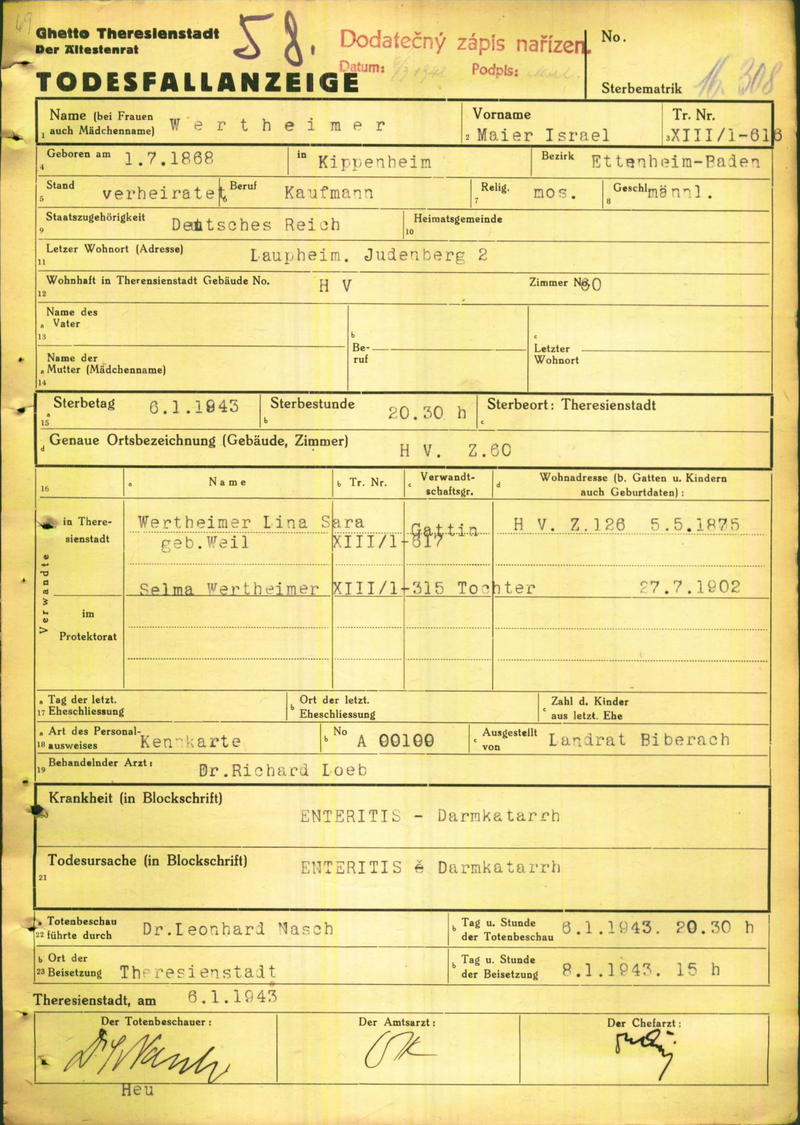 49
Ghetto Theresienstadt
Der Ältestenrat
58.
Dodatečný zápis nařízen.
Datum:
Podpis:
No.
TODESFALLANZEIGE
Sterbematrik 308
Name (bei Frauen auch Mädchenname) Wertheimer
1
Vorname
2 Maier Israel
Tr. Nr.
3 XIII/1-616
Geboren am 1.7.1868
4
in Kippenheim
Bezirk Ettenheim-Baden
Stand verheiratet
5
Beruf Kaufmann
6
Relig. mos.
7
Geschl. männl.
8
Staatszugehörigkeit Deutsches Reich
9
Heimatsgemeinde
10
Letzer Wohnort (Adresse) Laupheim. Judenberg 2
11
Wohnhaft in Theresienstadt Gebäude No. H V
12
Zimmer No 60
Name des
a Vater
13
b
Be-
ruf
c
Letzter
Wohnort
Name der
a Mutter (Mädchenname)
14
a Sterbetag 6.1.1943
15
Sterbestunde 20.30 h
b
Sterbeort: Theresienstadt
c
d Genaue Ortsbezeichnung (Gebäude, Zimmer) H V. Z.60
16
a Name
b Tr. Nr.
c Verwandt-
schaftsgr.
d Wohnadresse (b. Gatten u. Kindern
auch Geburtdaten) :
Verwandte
in There-
sienstadt
Wertheimer Lina Sara Gattin H V. Z.126 5.5.1875
geb.Weil XIII/1-617
Selma Wertheimer XIII/1-315 Tochter 27.7.1902
im
Protektorat
a Tag der letzt.
17 Eheschliessung
b Ort der letzt.
Eheschliessung
c Zahl d. Kinder
aus letzt. Ehe
a Art des Personal-
18 ausweises Kennkarte
b No A 00100
c Ausgestellt
von Landrat Biberach
19 Behandelnder Arzt: Dr.Richard Loeb
Krankheit (in Blockschrift)
ENTERITIS - Darmkatarrh
Todesursache (in Blockschrift) ENTERITIS Darmkatarrh
21
a Totenbeschau
22 führte durch Dr.Leonhard Nasch
b Tag u. Stunde
der Totenbeschau 6.1.1943. 20.30 h
b Ort der
23 Beisetzung Theresienstadt
b Tag u. Stunde
der Beisetzung 8.1.1943. 15 h
Theresienstadt, am 6.1.1943
Der Totenbeschauer:
Der Amtsarzt:
Der Chefarzt:
Heu